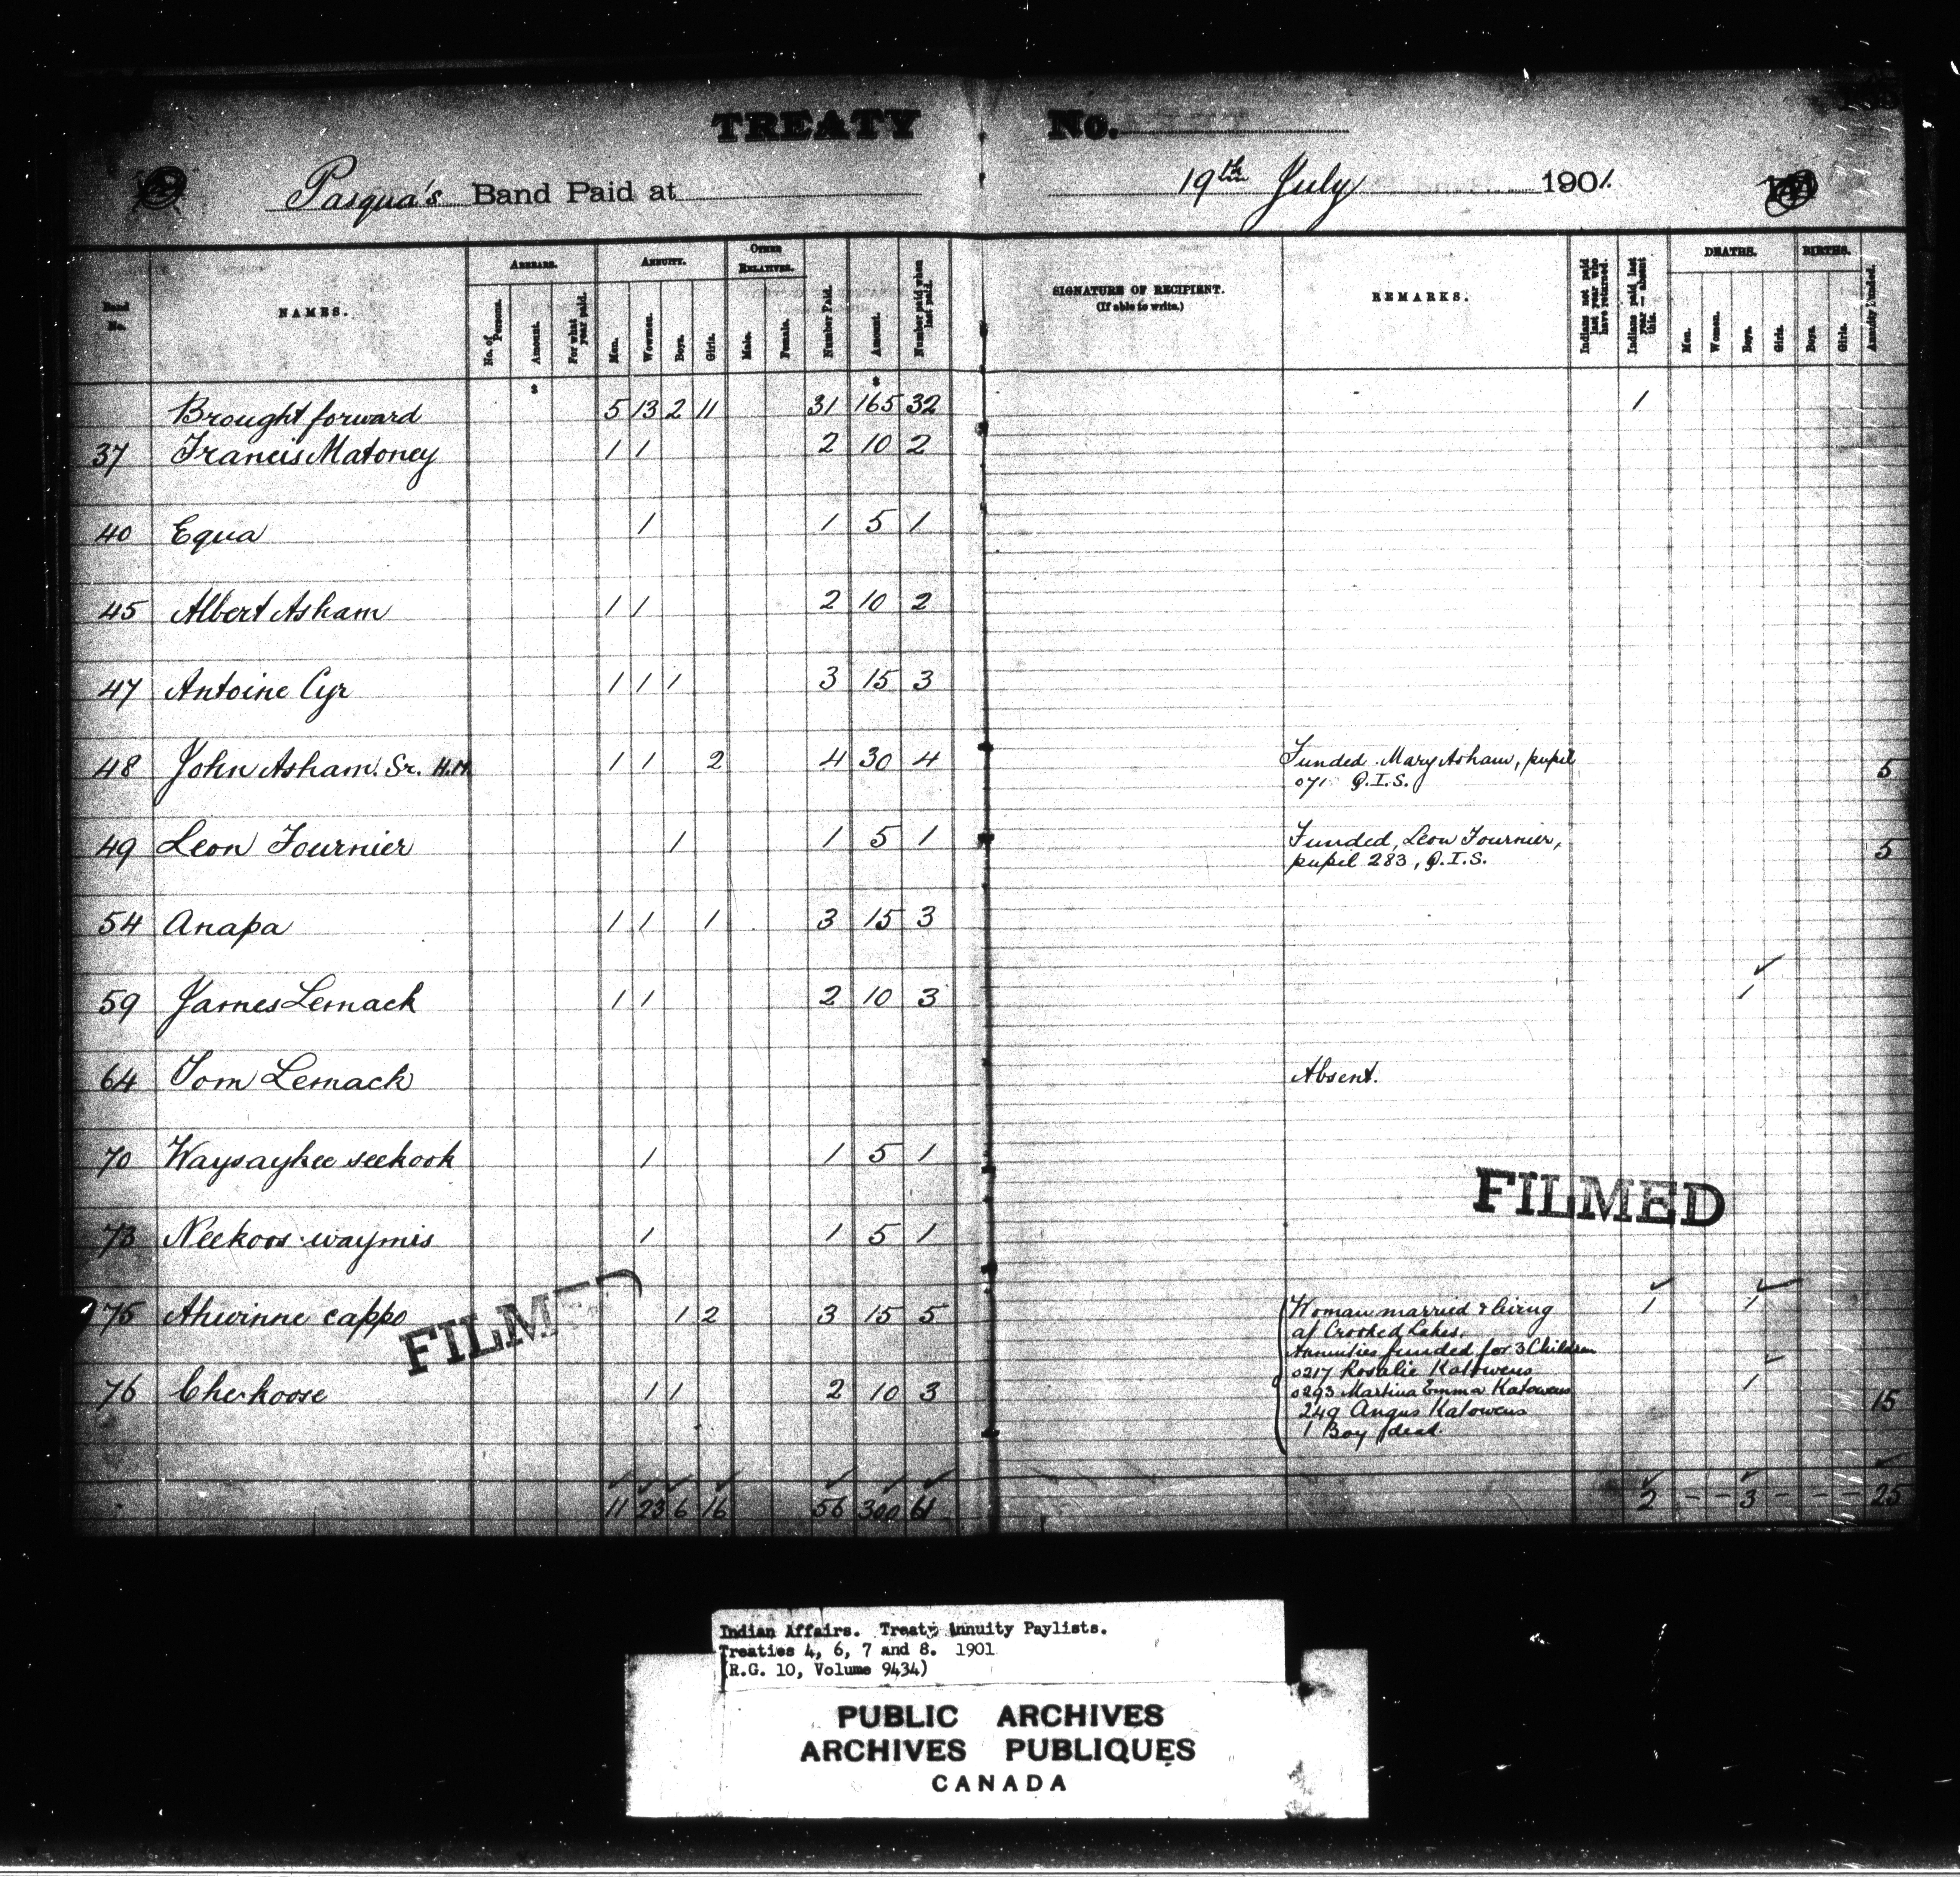 TREATY No.
Pasqua's Band Paid at 19th July 1901.
Band No.
NAMES.
ARREARS.
No. of Persons.
Amount.
For what year paid.
ANNUITY.
Men.
Women.
Boys.
Girls.
OTHER RELATIVES.
Male.
Female.
Number Paid.
Amount.
Number paid when last paid.
SIGNATURE OF RECIPIENT.
(If able to write.)
REMARKS.
Indians not paid last year who have returned.
Indians paid last year — absent this.
DEATHS.
Men.
Women.
Boys.
Girls.
BIRTHS.
Boys.
Girls.
Annuity Funded.
$ $
Brought forward 5 13 2 11 31 165 32 1
37 Francis Matoney 1 1 2 10 2
40 Equa 1 1 5 1
45 Albert Asham 1 1 2 10 2
47 Antoine Cyr 1 1 1 3 15 3
48 John Asham. Sr. H.M. 1 1 2 4 30 4 Funded Mary Asham, pupil
071 Q.I.S. 5
49 Leon Fournier 1 1 5 1 Funded, Leon Fournier,
pupil 283, Q.I.S. 5
54 Anapa 1 1 1 3 15 3
59 James Lemack 1 1 2 10 3 1
64 Tom Lemack Absent.
70 Waysaykee seekook 1 1 5 1
FILMED
73 Neekoos-waymis 1 1 5 1
75 Ahwinne cappo 1 2 3 15 5 Woman married & living 1 1
at Crooked Lakes.
FILMED
Annuities funded for 3 Children
0217 Rosalie Katowens
76 Chekoose 1 1 2 10 3 0293 Martina Emma Katowens 1
249 Angus Katowens 15
1 Boy dead.
11 23 6 16 56 300 61 2 - - 3 - - - 25
Indian Affairs. Treaty Annuity Paylists.
Treaties 4, 6, 7 and 8. 1901
(R.G. 10, Volume 9434)
PUBLIC ARCHIVES
ARCHIVES PUBLIQUES
CANADA